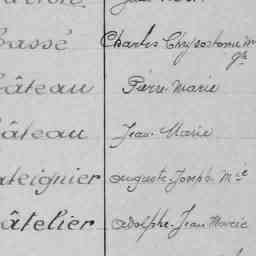 assé Charles Chrysostome M
gle
âteau Pierre Marie
âteau Jean Marie
ateignier Auguste Joseph Mie
âtelier Adolphe Jean Marie